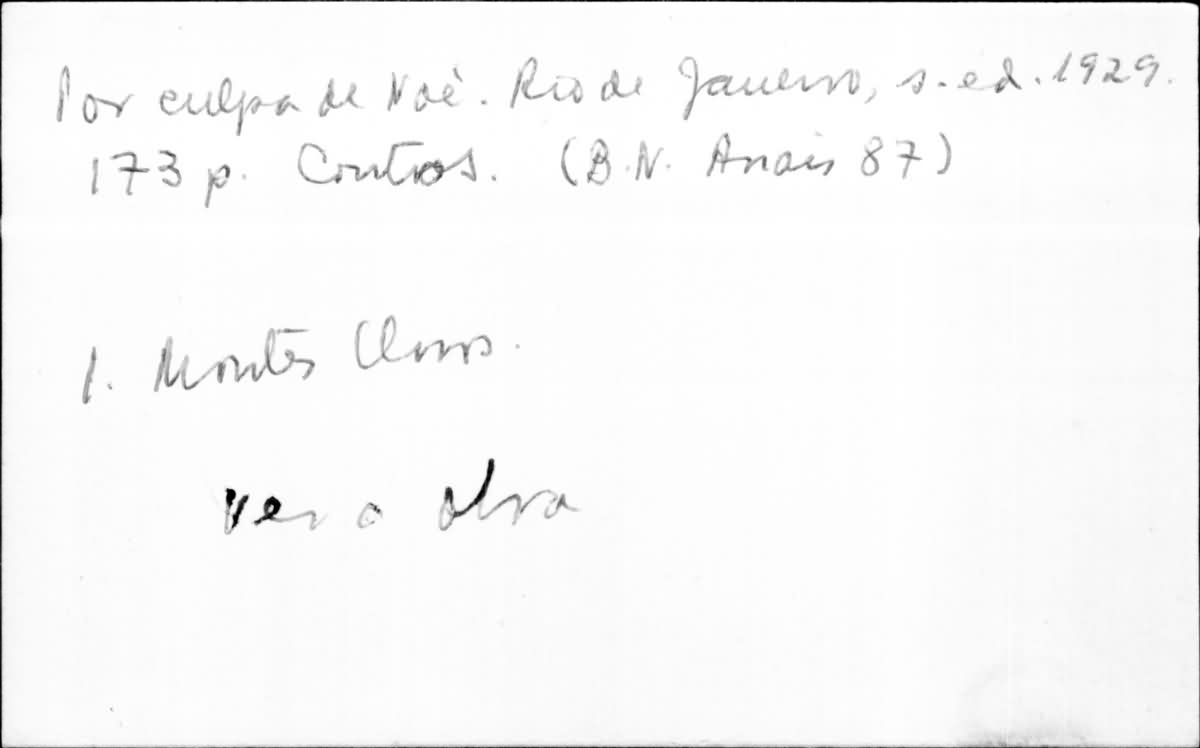 Por culpa de Noé. Rio de Janeiro, s. ed. 1929.
173 p. Contos. (B.N. Anais 87)
1. Montes Claros.
ver a obra